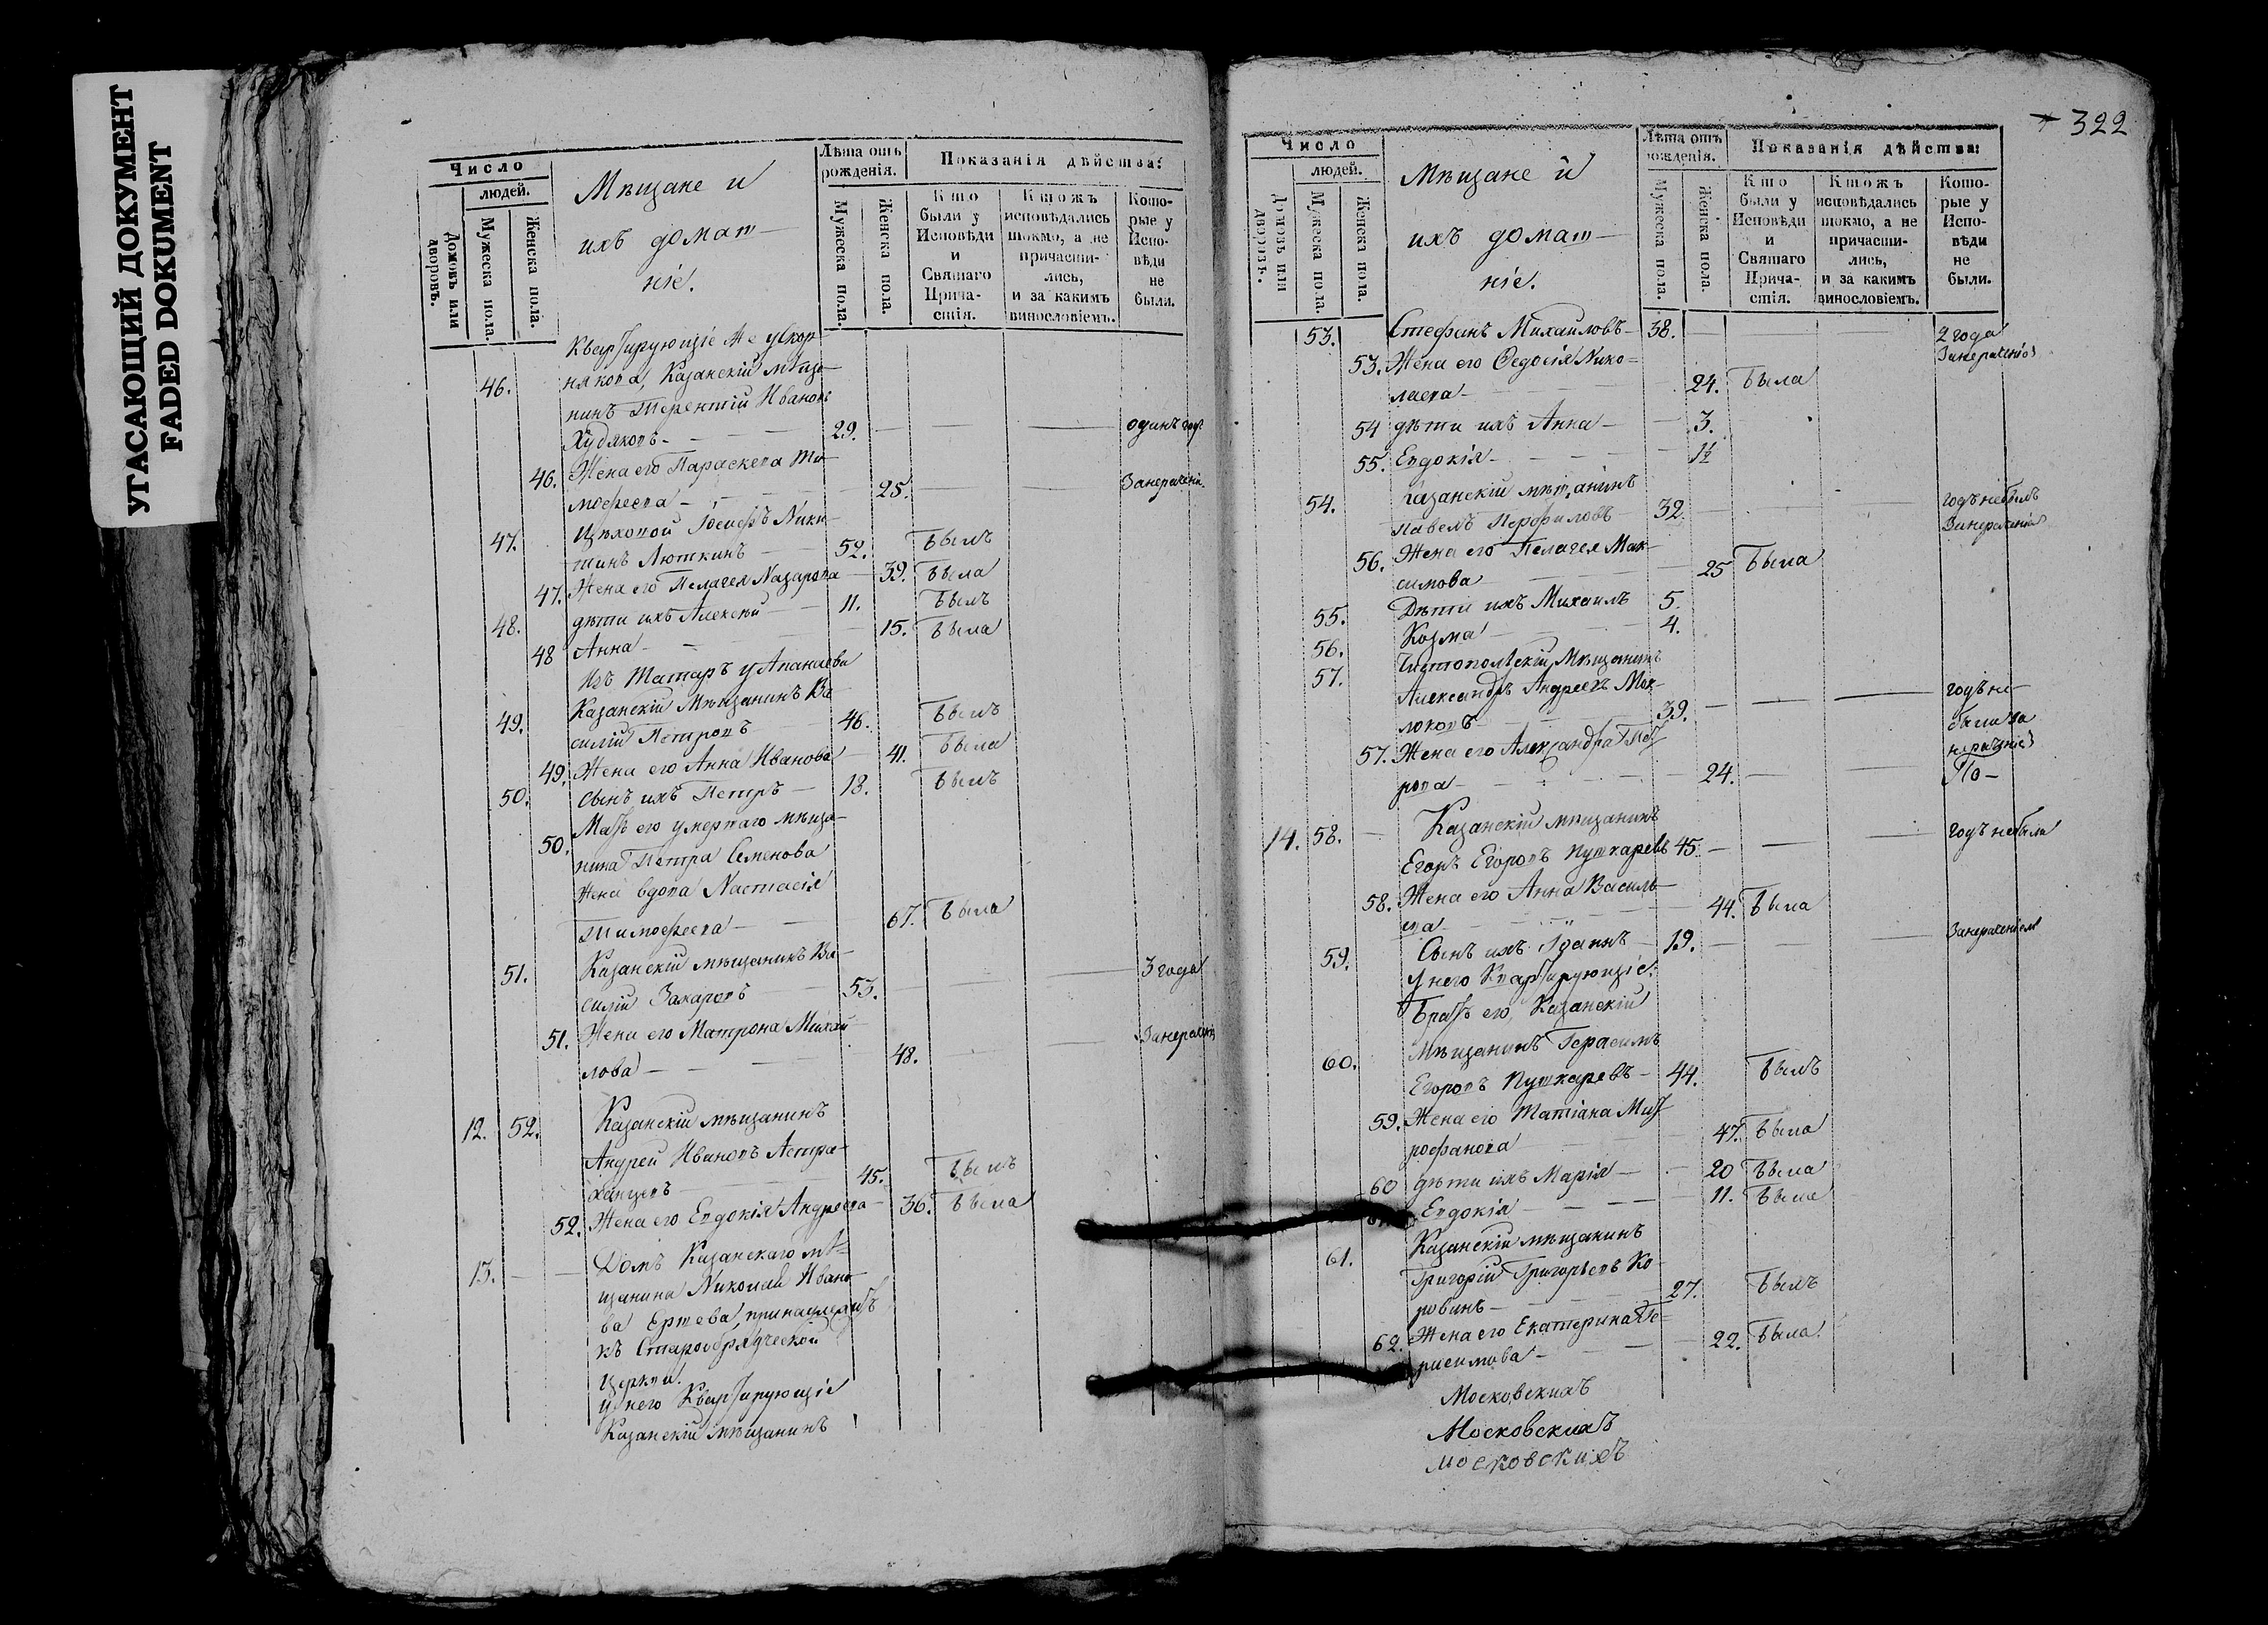 УГАСАЮЩИЙ ДОКУМЕНТ
FADED DOKUMENT
Число
людей.
Домовъ или дворовъ.
Мужеска пола.
Женска пола.
Мѣщане и
ихъ домаш-
ніе.
Лѣта отъ рожденія.
Мужеска пола.
Женска пола.
Показанія дѣйства:
Кто были у Исповѣди и Святаго Прича-стія.
Ктожъ исповѣдались токмо, а не причасти-лись, и за какимъ винословіемъ.
Кото-рые у Испо-вѣди не были.
Квартирующіе
46. Казанскій мѣща-
нинъ Терентій Ивановъ
Худяковъ - 29. одинъ годъ
46. Жена его Параскева Ти-
мофеева - 25. Занерачені.
47. Цѣховой Іосифъ Ники-
тинъ Люткинъ 52. былъ
47. Жена его Пелагея Назарова 39. была
48. дѣти ихъ Алексѣй 11. былъ
48 Анна - 15. была
Въ Татаръ у Апанаева
49. Казанскій Мѣщанинъ Ва-
силій Петровъ 46. былъ
49. Жена его Анна Иванова 41. была
50. Сынъ ихъ Петръ - 13. былъ
50. Мать его умершаго мѣща-
нина Петра Семенова
жена вдова Настасія
Тимофеева - 67. была
51. Казанскій мѣщанинъ Ва-
силій Захаровъ 53. 3 года
51. Жена его Матрона Михай-
лова - 48.
12. 52. Казанскій мѣщанинъ
Андрей Ивановъ Астра-
ханцевъ 45. былъ
52. Жена его Евдокія Андреева 36. была
13. Домъ Казанскаго мѣ-
щанина Николай Ивано-
ва Ертева, принадлежитъ
къ Старообрядческой
Церкви.
У него Квартирующіе
Казанскій мѣщанинъ
322
Число
людей.
Домовъ или дворовъ.
Мужеска пола.
Женска пола.
Мѣщане и
ихъ домаш-
ніе.
Лѣта отъ рожденія.
Мужеска пола.
Женска пола.
Показанія дѣйства:
Кто были у Исповѣди и Святаго Прича-стія.
Ктожъ исповѣдались токмо, а не причасти-лись, и за какимъ винословіемъ.
Кото-рые у Испо-вѣди не были.
53. Стефанъ Михайловъ - 38. 2 года
53. Жена его Ѳедосія Нико-
лаева - 24. была
54 дѣти ихъ Анна - 3.
55. Евдокія - 1½
54. Казанскій мѣщанинъ
Павелъ Перфиловъ 32. годъ небылъ
56. Жена его Пелагея Мак-
симова 25 была
55. Дѣти ихъ Михаилъ 5.
56. Козма 4.
57. Чистопольскій Мѣщанинъ
Александръ Андреевъ Мак-
локовъ - 39. годъ не-
были за
57. Жена его Александра Пет-
рова - 24.
14. 58. Казанскій мѣщанинъ
Егоръ Егоровъ Пушкаревъ 45. годъ небылъ
58. Жена его Анна Василь-
ева - 44. была
59. Сынъ ихъ Іоаннъ - 19.
У него Квартирующіе:
Братъ его, Казанскій
60. Мѣщанинъ Герасимъ
Егоровъ Пушкаревъ - 44. былъ
59. Жена его Татіана Мит-
рофанова 47. была
60 дѣти ихъ Марія - 20 была
Евдокія - 11. была
61. Казанскій мѣщанинъ
Григорій Григорьевъ Ко-
ровинъ - 27. былъ
62. Жена его Екатерина Ге-
расимова - 22. была
Московскихъ
Московскихъ
Московскихъ